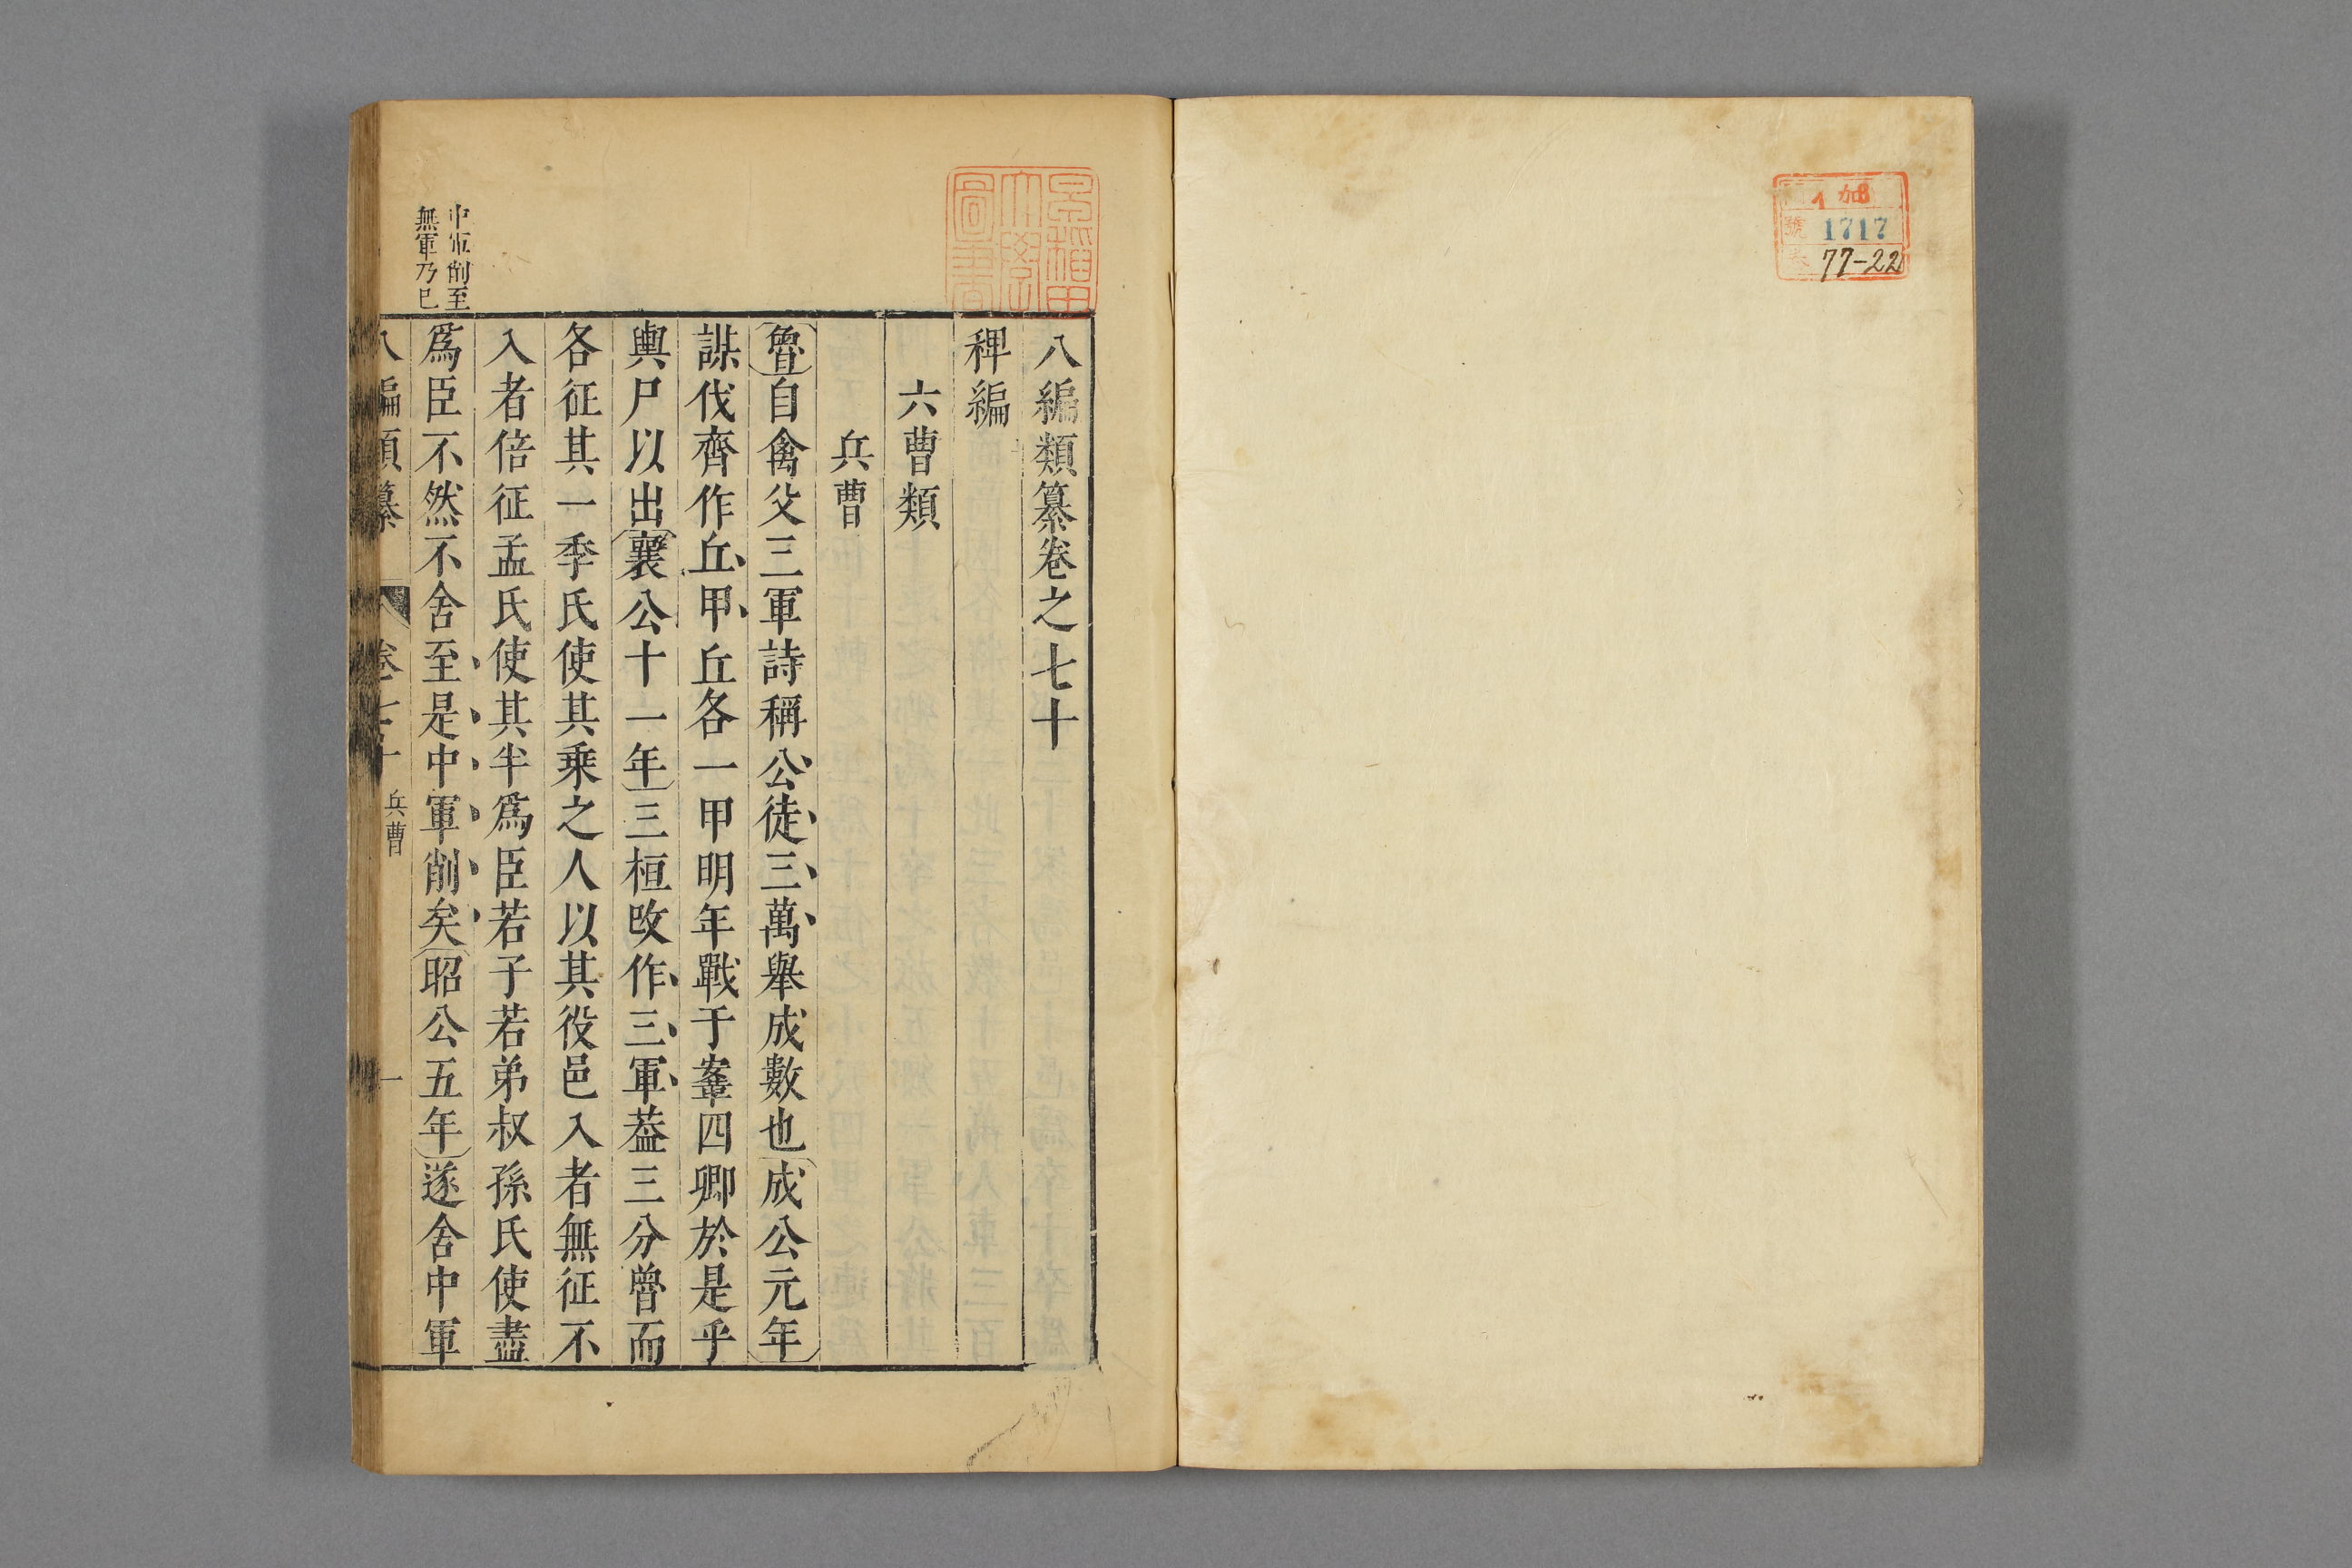 加
1717
77-22
早稲田
大學
圖書
八編類纂卷之七十
稗編
六曹類
兵曹
魯自禽父三軍詩稱公徒三萬舉成數也成公元年
謀伐齊作丘甲丘各一甲明年戰于鞌四卿於是乎
輿尸以出襄公十一年三桓改作三軍葢三分魯而
各征其一季氏使其乘之人以其役邑入者無征不
入者倍征孟氏使其半爲臣若子若弟叔孫氏使盡
爲臣不然不舍至是中軍削矣昭公五年遂舍中軍
中軍削至
無軍乃已
八編類纂 卷七十 兵曹 一